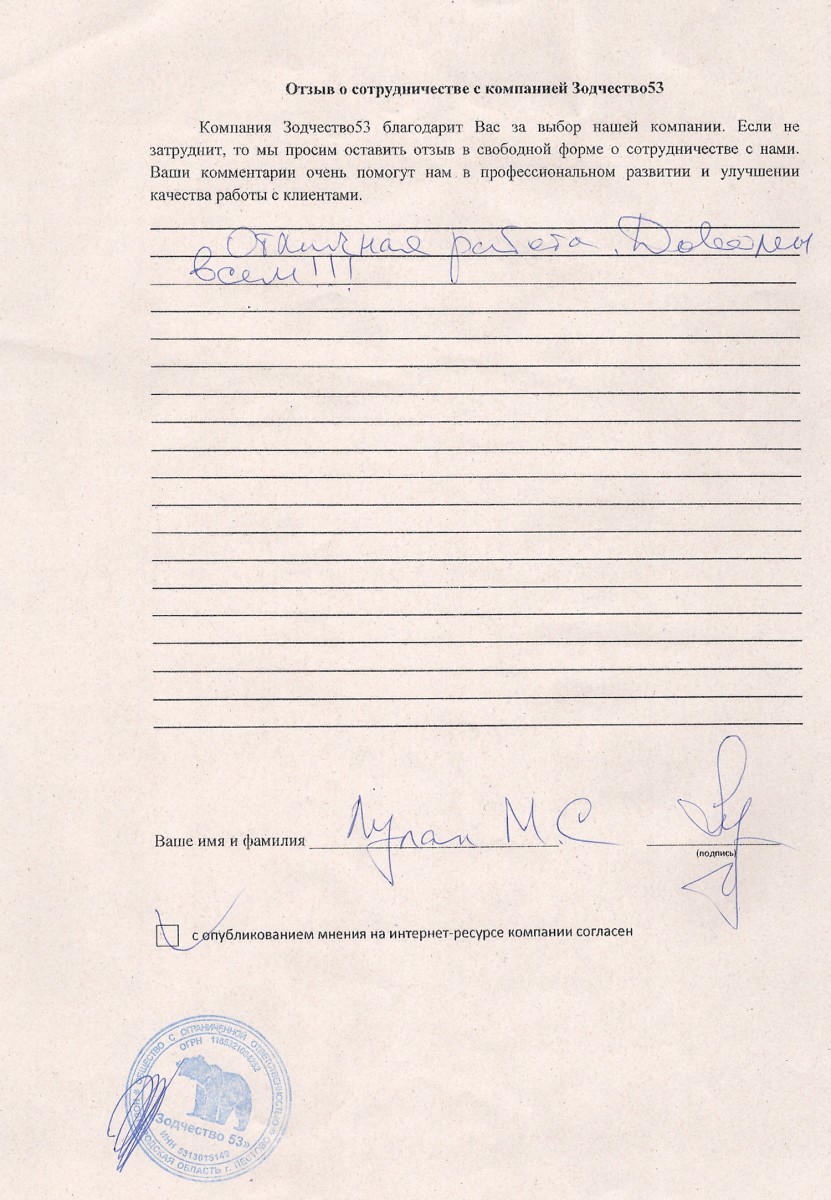 Отзыв о сотрудничестве с компанией Зодчество53
Компания Зодчество53 благодарит Вас за выбор нашей компании. Если не
затруднит, то мы просим оставить отзыв в свободной форме о сотрудничестве с нами.
Ваши комментарии очень помогут нам в профессиональном развитии и улучшении
качества работы с клиентами.
Отличная работа.
всем!!!
Ваше имя и фамилия М.С
(подпись)
с опубликованием мнения на интернет-ресурсе компании согласен
ОБЩЕСТВО С ОГРАНИЧЕННОЙ ОТВЕТСТВЕННОСТЬЮ
ОГРН
Зодчество 53»
ИНН 5313015149
ОБЛАСТЬ г. ПЕСТОВО